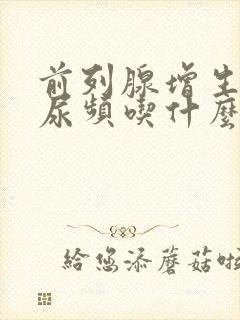 前列腺增生
尿頻喫什麼
給您添蘑菇啦